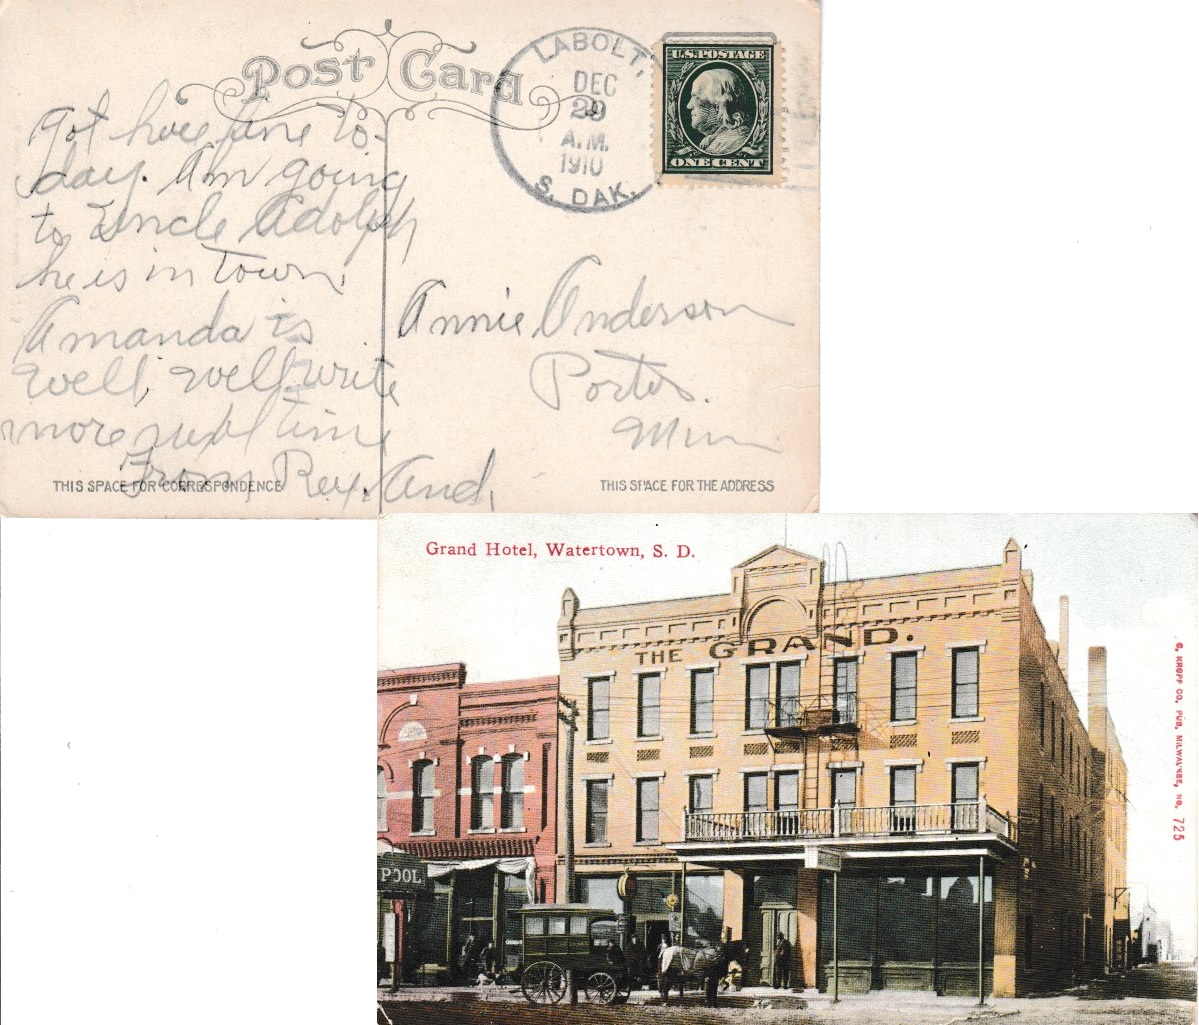 Post Card
LABOLT,
DEC
29
A.M.
1910
S. DAK.
U.S. POSTAGE
ONE CENT
Got here fine to-
day. Am going
to Uncle Adolph
he is in Town.
Amanda is
well, well write
more next time
From Rey. And.
Annie Anderson
Porter
Minn
THIS SPACE FOR CORRESPONDENCE
THIS SPACE FOR THE ADDRESS
Grand Hotel, Watertown, S. D.
THE GRAND.
POOL
C. KROPP CO. PUB. MILWAUKEE, NO. 725